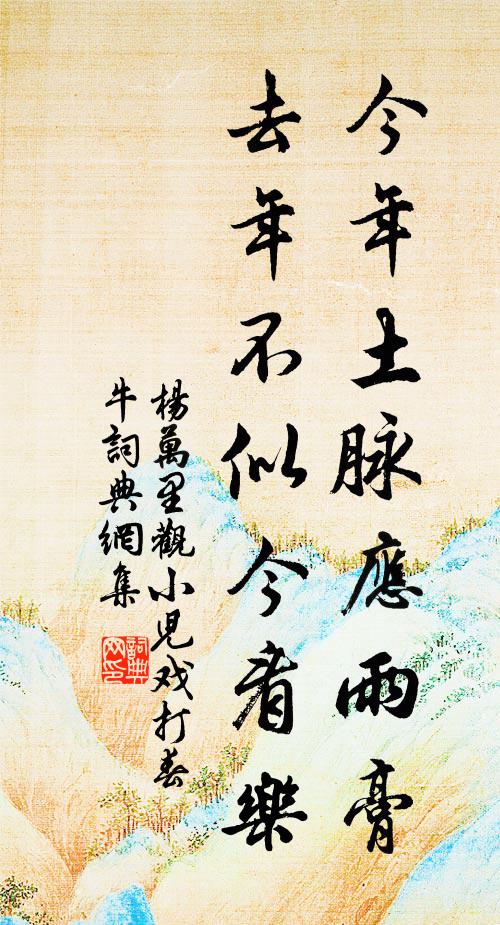 今年土脉應雨膏
去年不似今看樂
楊萬里觀小児戏打春
牛詞典網集
詞典
网印